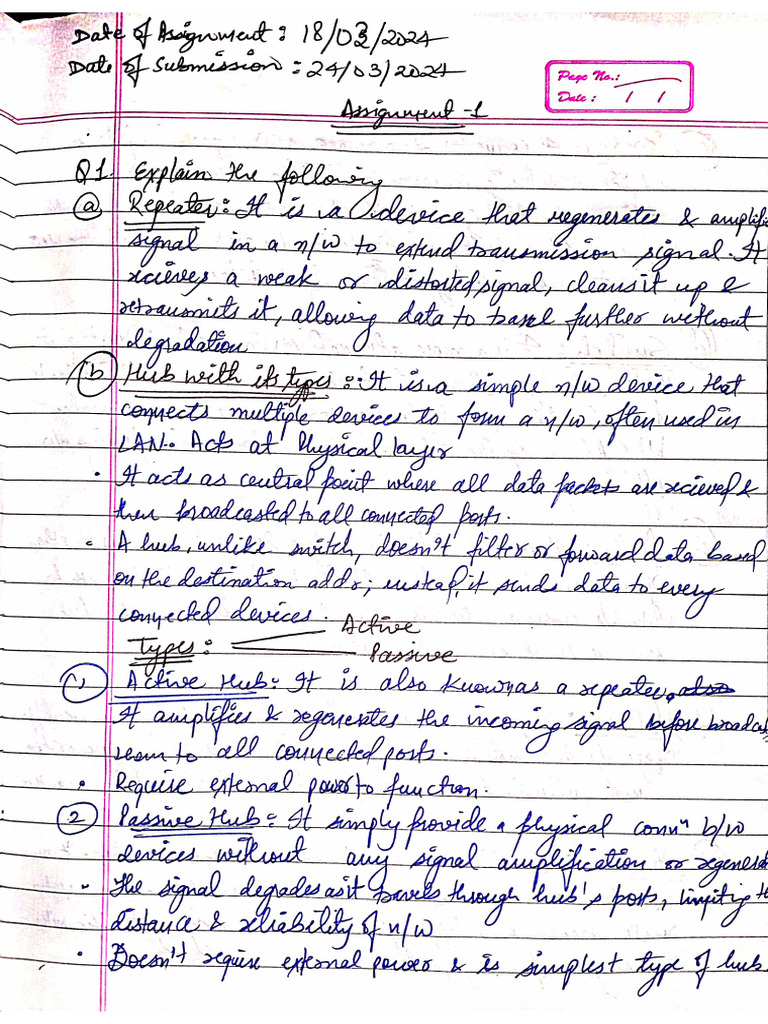 Date of Assignment : 18/03/2024
Date of Submission : 24/03/2024
Page No.:
Date : / /
Assignment -1
Q1. Explain the following
(a) Repeater : It is a device that regenerates & amplifi
signal in a n/w to extend transmission signal. It
recieves a weak or distorted signal, cleans it up &
retransmits it, allowing data to travel further without
degradation
(b) Hub with its types :- It is a simple n/w device that
connects multiple devices to form a n/w, often used in
LAN. Acts at Physical layer
• It acts as central point where all data packets are recieved &
then broadcasted to all connected ports.
• A hub, unlike switch, doesn't filter or forward data based
on the destination addr; instead, it sends data to every
connected devices.
Active
Types :
Passive
(1) Active Hub : It is also known as a repeater, also
It amplifies & regenerates the incoming signal before broadcas
to all connected ports.
• Require external power to function.
(2) Passive Hub : It simply provide a physical connⁿ b/w
devices without any signal amplification or regenera
• The signal degrades as it travels through hub's ports, limiting th
distance & reliability of n/w
• Doesn't require external power & is simplest type of hub